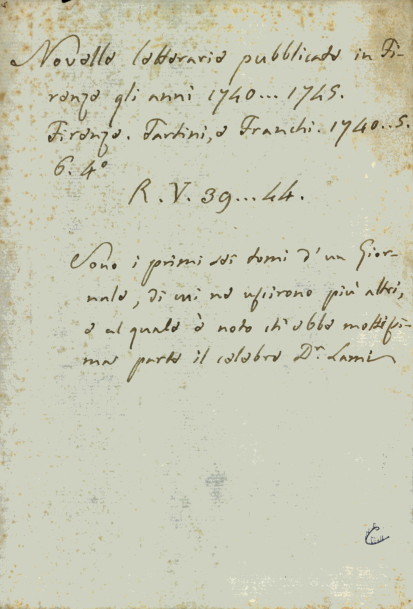 Novelle letterarie pubblicate in Fi-
renze gli anni 1740... 1745.
Firenze. Tartini, e Franchi. 1740..5.
6. 4°
R. V. 39...44.
Sono i primi sei tomi d'un Gior-
nale, di cui ne uscirono più altri,
e al quale è noto ch'ebbe moltissi-
ma parte il celebre Dr. Lami
C